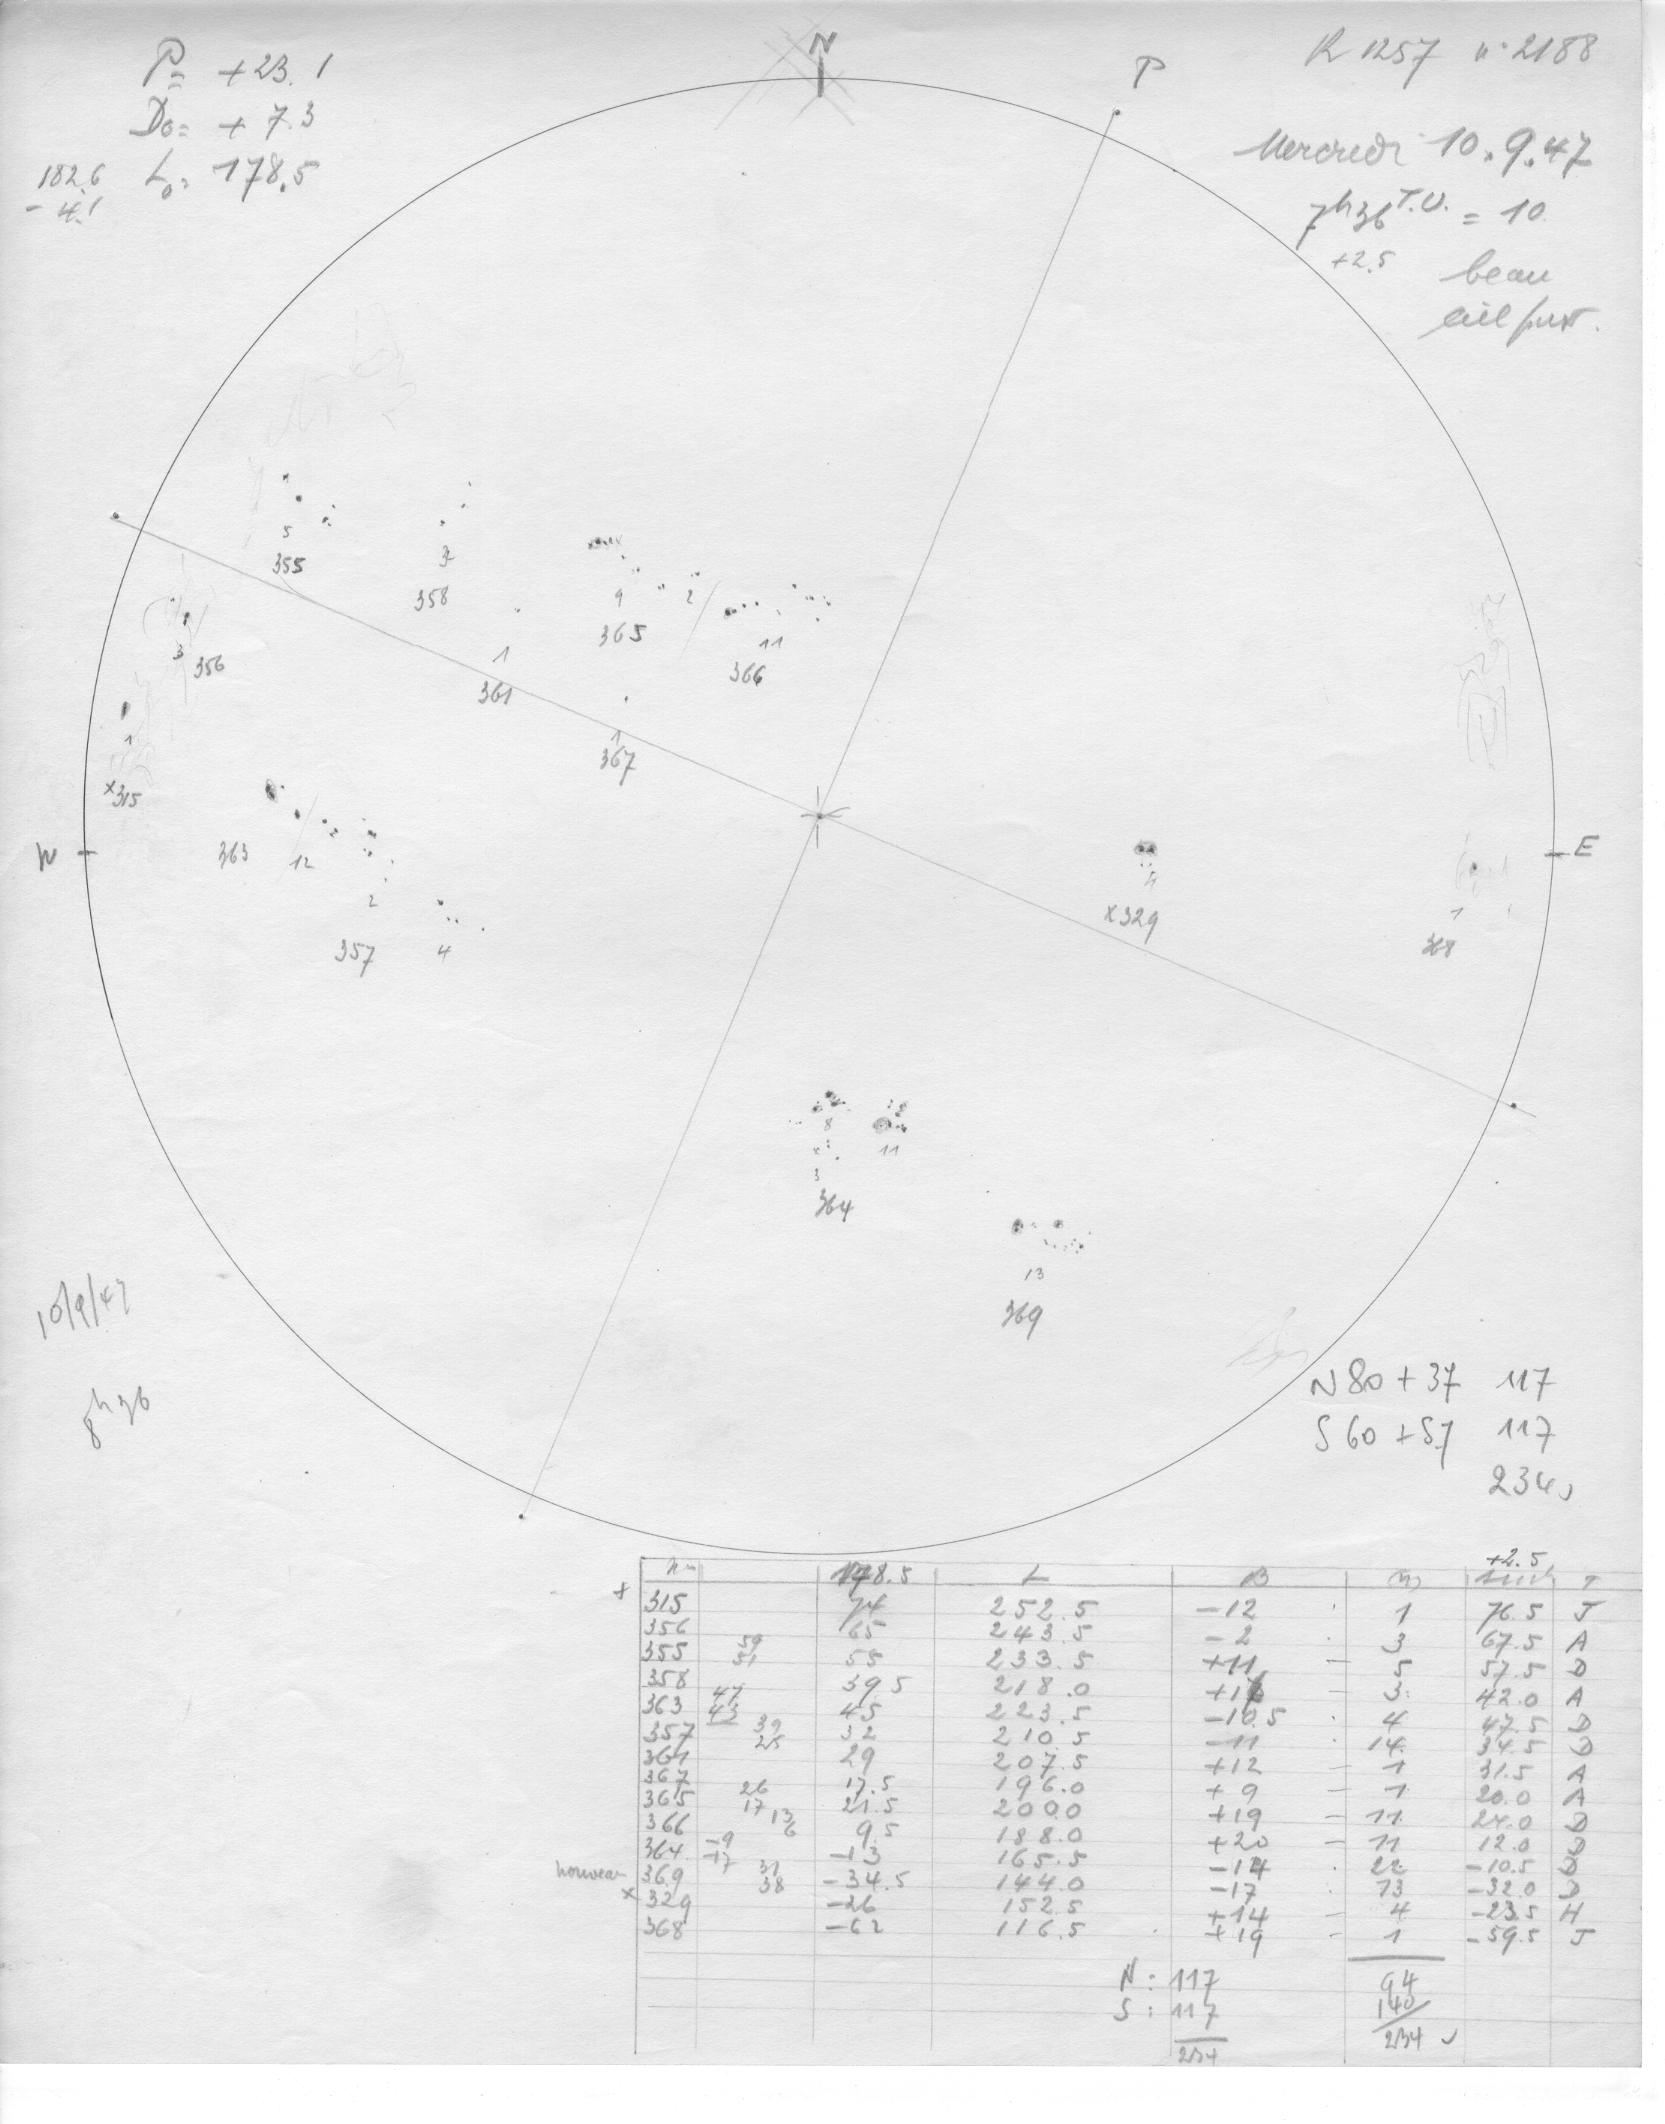 P= +23.1
D0= +7.3
182.6 L0= 178.5
- 4.1
N
P
R 1257 n° 2188
Mercredi 10.9.47
7h36 T.U. = 10
+2.5 beau
5
355
3
358
9
365
2
11
366
3
356
1
361
1
367
1
x315
W
E
363
12
2
357
4
4
x329
1
368
8
11
3
364
13
369
10/9/47
8h36
N 80 + 37 117
S 60 + 57 117
234
+2.5
178.5 L B
x 315 74 252.5 -12 1 76.5 J
356 65 243.5 -2 3 67.5 A
355 59 51 55 233.5 +11 5 57.5 D
358 39.5 218.0 3 42.0 A
363 47 43 45 223.5 -10.5 4 47.5 D
357 39 25 32 210.5 -11 14 34.5 D
361 29 207.5 +12 1 31.5 A
367 17.5 196.0 +9 1 20.0 A
365 26 17 21.5 200.0 +19 11 24.0 D
366 13 6 9.5 188.0 +20 11 12.0 D
364 -9 -17 -13 165.5 -14 22 -10.5 D
nouveau 369 31 38 -34.5 144.0 -17 13 -32.0 D
x 329 -26 152.5 +14 4 -23.5 H
368 -62 116.5 +19 1 -59.5 J
N : 117 94
S : 117 140
234 234